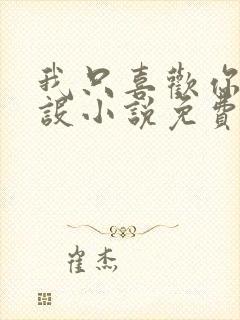 我只喜歡你
設小說免費
崔杰